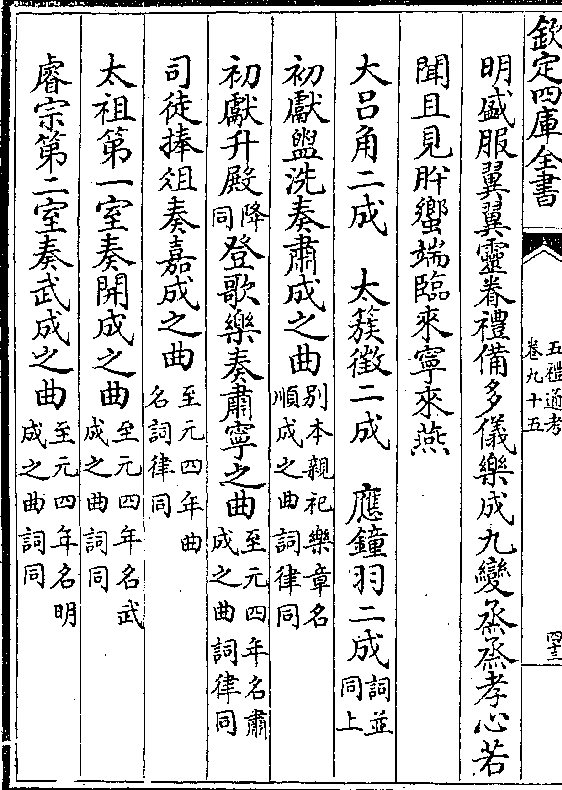 欽定四庫全書
五禮通考
卷九十五
四十三
明盛服翼翼靈眷禮備多儀樂成九變烝烝孝心若
聞且見肸蠁端臨來寧來燕
大呂角二成 太簇徵二成 應鐘羽二成詞並同上
初獻盥洗奏肅成之曲別本親祀樂章名順成之曲詞律同
初獻升殿降同登歌樂奏肅寧之曲至元四年名肅成之曲詞律同
司徒捧俎奏嘉成之曲至元四年曲名詞律同
太祖第一室奏開成之曲至元四年名武成之曲詞同
睿宗第二室奏武成之曲至元四年名明成之曲詞同